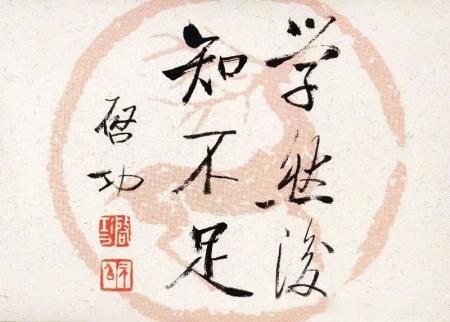 学然後
知不足
啓功